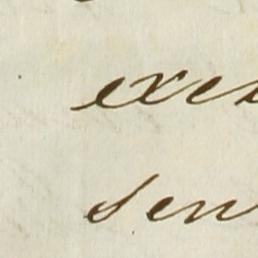 exe
sen